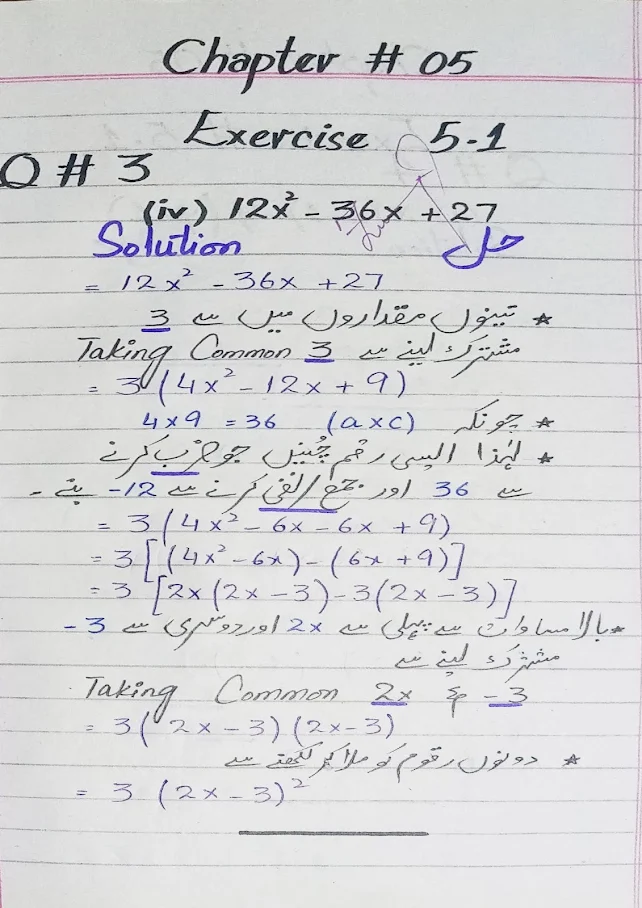 Chapter # 05
Exercise 5-1
Q # 3
(iv) 12x² - 36x + 27
Solution حل
= 12x² - 36x + 27
* تینوں مقداروں میں سے 3
مشترک لینے سے Taking Common 3
= 3 (4x² - 12x + 9)
* چونکہ (a×c) 4×9 = 36
* لہٰذا ایسی رقم چُنیں جو ضرب کرنے
سے 36 اور جمع/نفی کرنے سے 12- بنے -
= 3 (4x² - 6x - 6x + 9)
= 3 [(4x² - 6x) - (6x + 9)]
= 3 [2x (2x - 3) - 3(2x - 3)]
* بالا مساوات سے پہلی سے 2x اور دوسری سے 3 -
مشترک لینے سے
Taking Common 2x & -3
= 3 (2x - 3) (2x - 3)
* دونوں رقوم کو ملا کر لکھنے سے
= 3 (2x - 3)²